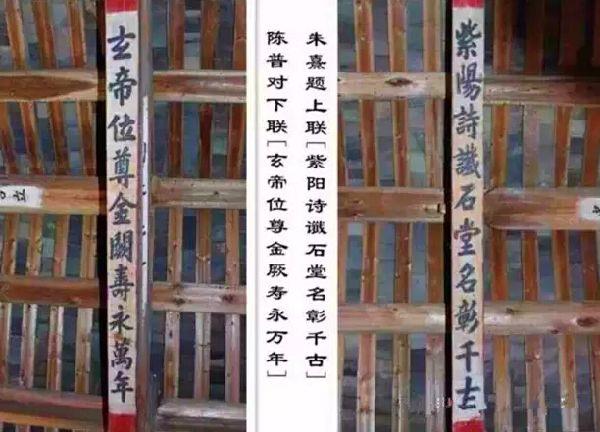 紫陽詩讖石堂名彰千古
朱熹题上联[紫阳诗谶石堂名彰千古]
陈普对下联[玄帝位尊金厥寿永万年]
玄帝位尊金闕壽永萬年